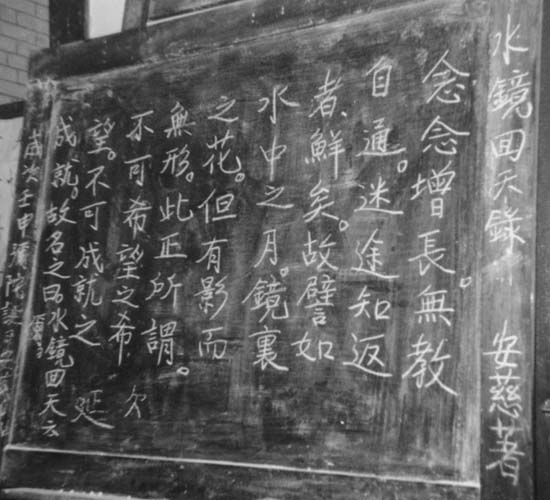 水鏡回天錄 安慈著
念念增長。無教
自通。迷途知返
者、鮮矣。故譬如
水中之月。鏡裏
之花。但有影而
無形。此正所謂。
不可希望之希 欠
望。不可成就之 延
成就。故名之曰。水鏡回天云
歲次壬申